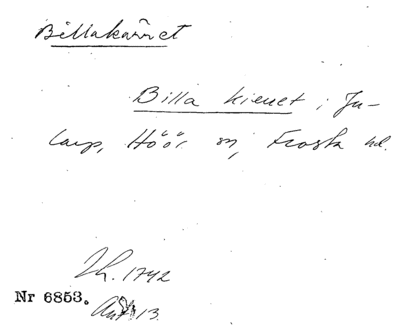 Billakärret
Billa kieret i Ju-
larp, Höör sn, Frosta hd.
Lh. 1742
Nr 6853.
Akt 13.